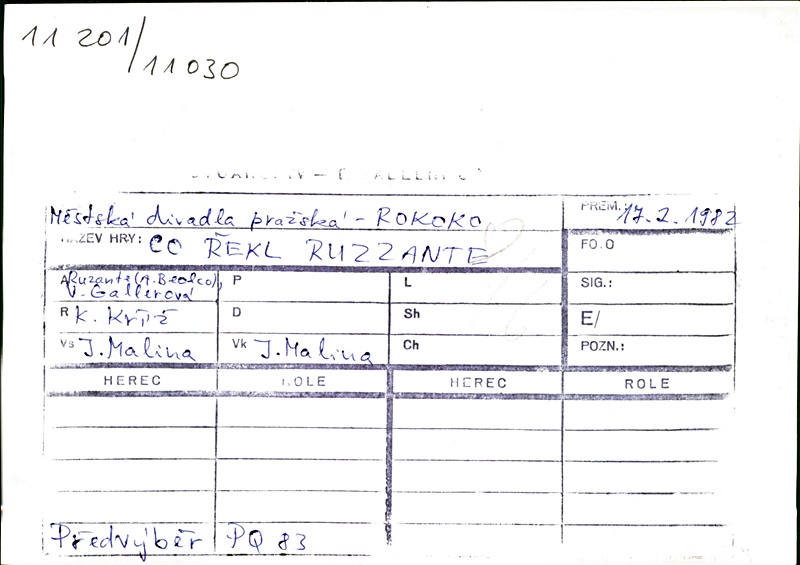 11 201/11030
Městská divadla pražská - ROKOKO
PREM.: 17.2.1982
NÁZEV HRY: CO ŘEKL RUZZANTE
FOTO
A Ruzante (A. Beolco),
V. Gallerová
P
L
SIG.:
R K. Kříž
D
Sh
E/
Vs J. Malina
Vk J. Malina
Ch
POZN.:
HEREC ROLE HEREC ROLE
Předvýběr PQ 83